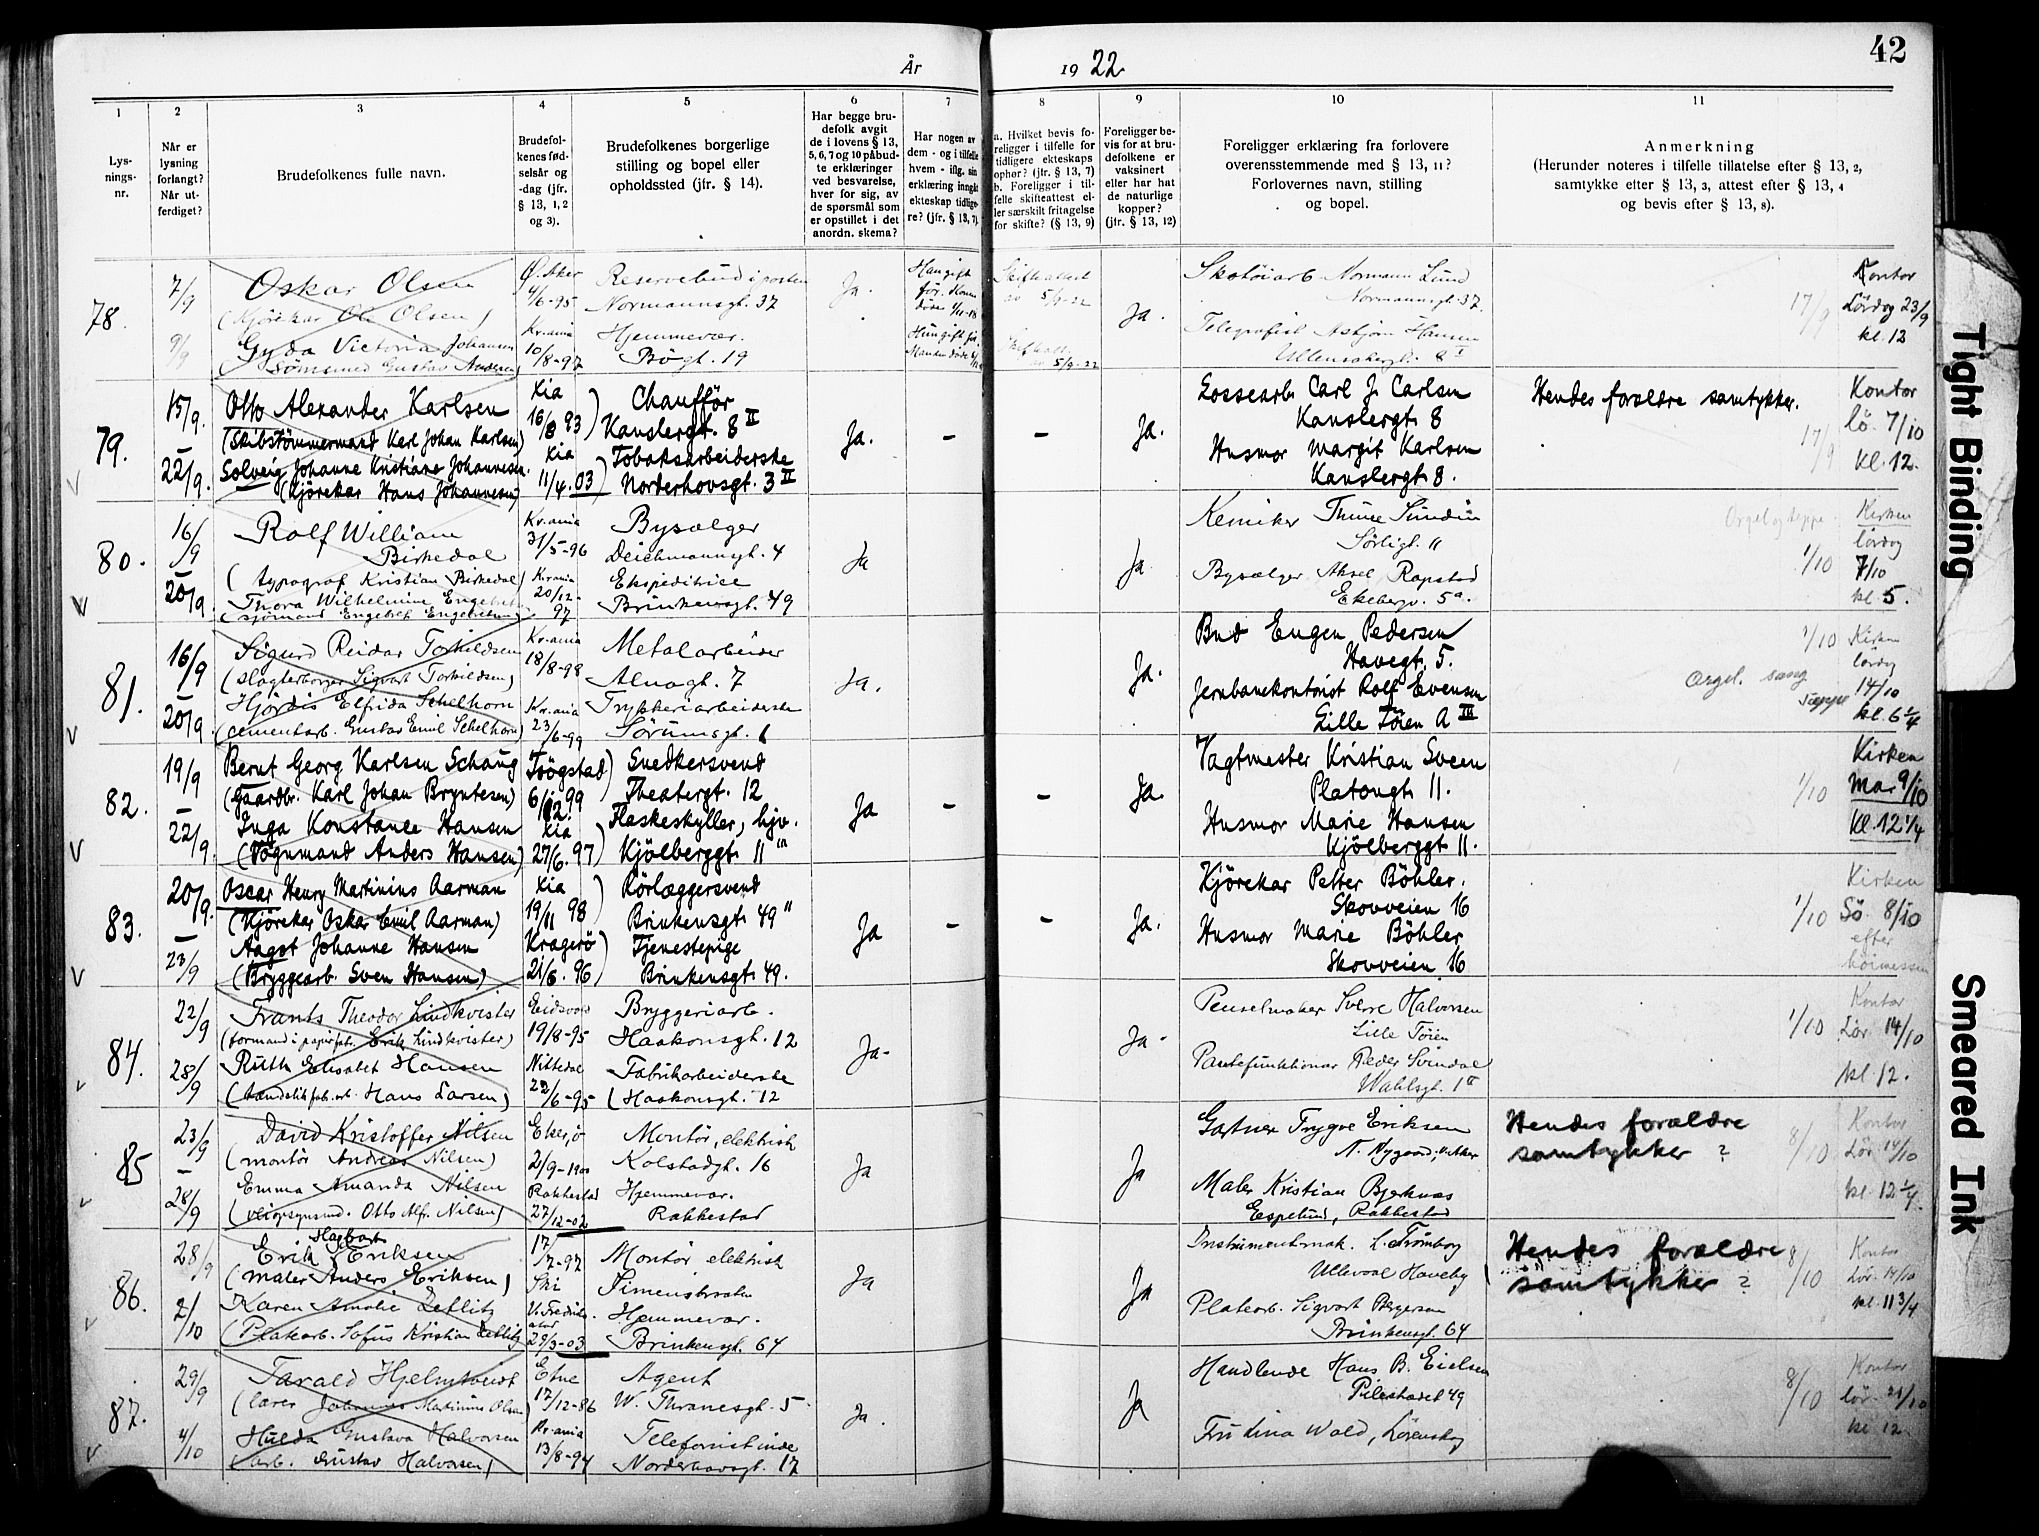 42
År 1922
1
2
3
4
5
6
7
8
9
10
11
Lysnings-nr.
Når er lysning forlangt? Når utferdiget?
Brudefolkenes fulle navn.
Brudefolkenes fødselsår og -dag (jfr. § 13, 1, 2 og 3).
Brudefolkenes borgerlige stilling og bopel eller opholdssted (jfr. § 14).
Har begge brudefolk avgit de i lovens § 13, 5, 6, 7 og 10 påbudte erklæringer ved besvarelse, hver for sig, av de spørsmål som er opstillet i det anordn. skema?
Har nogen av dem - og i tilfelle hvem - iflg. sin erklæring inngåt ekteskap tidligere? (jfr. § 13, 7)
a. Hvilket bevis foreligger i tilfelle for tidligere ekteskaps ophør? (jfr. § 13, 7)
b. Foreligger i tilfelle skifteattest eller særskilt fritagelse for skifte? (§ 13, 9)
Foreligger bevis for at brudefolkene er vaksinert eller har hat de naturlige kopper? (jfr. § 13, 12)
Foreligger erklæring fra forlovere overensstemmende med § 13, 11?
Forlovernes navn, stilling og bopel.
Anmerkning
(Herunder noteres i tilfelle tillatelse efter § 13, 2, samtykke efter § 13, 3, attest efter § 13, 4 og bevis efter § 13, 8).
78.
7/9
9/9
Oskar Olsen
(Kjørekar Ole Olsen)
Gyda Victoria Johansen
(Sømand Gustav Andersen)
Ø. Aker
4/6-95
Kr.ania
10/8-97
Reservebud i posten
Normannsgt. 37
Hjemmevær.
Bøgt. 19
Ja.
Han gift
før.
Hun gift før.
Skifteattest
av 5/9-22
av 5/9-22
Ja.
Skotøiarb Normann Lund
Normannsgt. 37.
Telegrafist Asbjørn Hansen
Ullensakergt. 8 I
17/9
Kontor
Lørdag 23/9
kl. 12
79.
15/9.
22/9.
Otto Alexander Karlsen
(Skibstømmermand Karl Johan Karlsen)
Solveig Johanne Kristiane Johannesen.
(Kjørekar Hans Johannesen)
Kia
16/8 93
Kia
11/4. 03
Chauffør
Kanslergt. 8 II
Tobaksarbeiderske
Norderhovsgt. 3 II
Ja.
–
–
Ja.
Lossearb. Carl J. Carlsen
Kanslergt. 8
Husmor Margit Karlsen
Kanslergt. 8.
Hendes forældre samtykker.
17/9
Kontor
lø. 7/10
kl. 12.
80.
16/9
20/9
Rolf William
Birkedal
(typograf Kristian Birkedal)
Thora Wilhelmine Engebretsen
(sjømand Engebret Engebretsen)
Kr.ania
31/5-96
Kr.ania
20/12-97
Bysælger
Deichmannsgt. 4
Ekspeditrice
Brinkensgt. 49
Ja
Ja
Kemiker Thune Sundin
Sørligt. 11
Bysælger Aksel Rapstad
Ekebergv. 5a.
Orgel og teppe.
1/10
Kirken
lørdag
7/10
kl. 5.
81.
16/9
20/9.
Sigurd Reidar Torkildsen
(slagterborger Sigvart Torkildsen)
Hjørdis Elfrida Schelhorn
(cementarb. Gustav Emil Schelhorn)
Kr.ania
18/8-98
Kr.ania
23/6-99
Metalarbeider
Alnagt. 7
Trykkeriarbeiderske
Sørumsgt. 1
Ja.
Ja.
Bud Eugen Pedersen
Havegt. 5.
Jernbanekontorist Rolf Evensen
Lille Tøien A III
Orgel. sang
Tæppe
1/10
Kirken
lørdag
14/10
kl. 6 1/4
82.
19/9
22/9.
Bernt Georg Karlsen Schaug
(Gaardbr. Karl Johan Bryntesen)
Inga Konstance Hansen
(Vognmand Anders Hansen)
Trøgstad
6/12 99
Kia
27/6. 97
Snedkersvend
Theatergt. 12
Flaskeskyller, hjv.
Kjølberggt. 11
Ja
–
–
Ja.
Vagtmester Kristian Sveen
Platougt. 11.
Husmor Marie Hansen
Kjølberggt. 11.
1/10
Kirken
Ma. 9/10
kl. 12 1/4
83.
20/9.
23/9
Oscar Henry Martinius Aarman
(Kjørekar Oskar Emil Aarman)
Aagot Johanne Hansen
(Bryggearb. Sven Hansen)
Kia
19/11 98
Kragerø
21/6. 96
Rørlæggersvend
Brinkensgt. 49 II
Tjenestepige
Brinkensgt. 49.
Ja
–
–
Ja.
Kjørekar Petter Böhler.
Skovveien 16
Husmor Marie Böhler
Skovveien 16
1/10
Kirken
Sø. 8/10
efter
høimessen
84.
22/9
28/9
Frants Theodor Lindkvister
(formand i papirfab. Erik Lindkvister)
Ruth Elisabet Hansen
(tændstikfab.arb. Hans Larsen)
Eidsvold
19/8-95
Nittedal
22/6-95
Bryggeriarb.
Haakonsgt. 12
Fabrikarbeiderske
(Haakonsgt. 12
Ja-
Ja-
Penselmaker Sverre Halvorsen
Lille Tøien
Pantefunktionær Peder Svindal
Wahlsgt. 1
1/10
Kontor
Lør. 14/10
kl. 12.
85
23/9
28/9
David Kristoffer Nilsen
(montør Andreas Nilsen)
Emma Amanda Nilsen
(veiopsynsmd. Otto Alf. Nilsen)
2/9-1900
Rakkestad
27/12-02
Montør, elektrisk
Kolstadgt. 16
Hjemmevær.
Rakkestad
Ja
Ja
Gartner Trygve Eriksen
N. Nygaard, V. Aker
Maler Kristian Bjerknæs
Espelund, Rakkestad
Hendes forældre
samtykker ?
8/10
Kontor
Lør. 14/10
kl. 12 1/4.
86.
28/9
2/10
Hagbart
Erik Eriksen
(maler Anders Eriksen)
Karen Amalie Zetlitz
(Platearb. Sofus Kristian Zetlitz)
17/7-97
Ski
29/3-03
Montør elektrisk
Simensbråten
Hjemmevær.
Brinkensgt. 64
Ja
Ja
Instrumentmak. L. Trømborg
Ullevaal Haveby
Platearb. Sigvart Bergersen
Brinkensgt. 64
Hendes forældre
samtykker ?
8/10
Kontor
Lør. 14/10
kl. 11 3/4
87.
29/9
4/10
Tarald Hjelmtveidt
(lærer Johannes Martinius Olsen)
Hulda Gustava Halvorsen
(arb. Gustav Halvorsen)
Etne
17/12-86
Kr.ania
13/8-94
Agent
W. Thranesgt. 5.
Telefonistinde
Norderhovsgt. 17
Ja.
Ja
Handlende Hans B. Eielsen
Pilestrædet 49
Fru Lina Wold, Lørenskog
8/10
Kontor
lør. 21/10
kl 12
Tight Binding
Smeared Ink